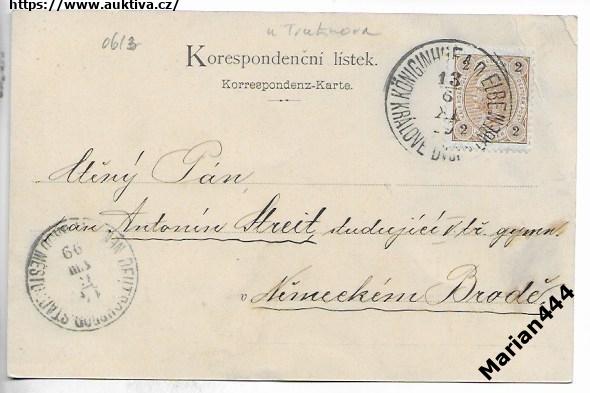 https://www.auktiva.cz/
u Trutnova
0613
Korespondenční lístek.
Korrespondenz-Karte.
KÖNIGINHOF A. D. ELBE
KRÁLOVÉ DVŮR
13
6
2
2
2
2
Ctěný Pán,
pan Antonín Streit studující V. tř. gymn.
v Německém Brodě.
STADT
MĚSTO
99
Marian444